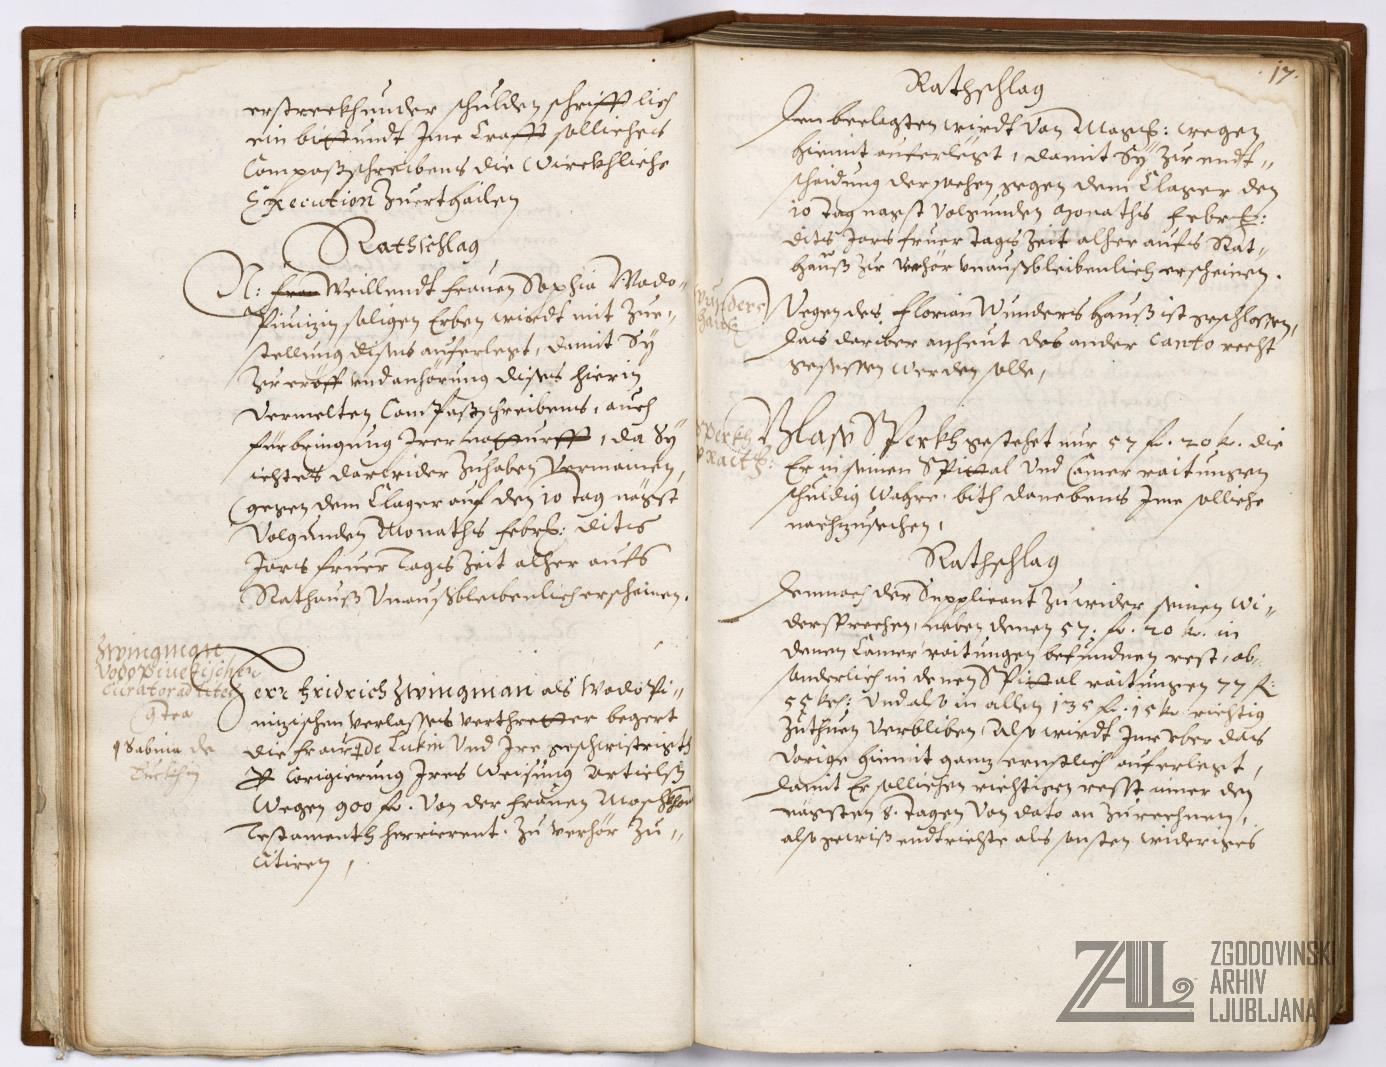 erstreckhunder schulden schrifftlich
ein bitt undt Ime Crafft solliches
Compaßschreibens die Würckhliche
Execution Zuerthailen
Rathschlag
N: Weillendt frauen Sophia Wado-
Piuizin saligen Erben wirdt mit Zue-
stellung dises auferlegt, damit Sÿ
Zu eröff und anhörung dises hierin
Vermelten Compaßschreibens, auch
fürbringung Irer notturfft, da Sÿ
ichtes darwider Zuhaben Vermainen,
gegen dem Clager auf den 10 tag nagst
Volgunden Monaths febr: ditis
Jars fruer Tags Zeit alher aufs
Rathauß Unaußbleibenlich erscheinen.
Zwingman
Vodopiuekischer
Curator ad lites
Cotra
Sabina de
Herr fridrich Zwingman als Wadopi-
uizischen verlasses verthretter begert
die frau de Lukin Und Ire geschwistrigth
Corigierung Ires Weisung Articlß
Wegen 900 f. von der frauen
Testament herrierent. Zu Verhör Zu-
Citiren,
17.
Rathschlag
Den beclagten wirdt von Magist: wegen
hiemit auferlegt, damit Sÿ Zu endt-
scheidung der sachen gegen dem Clager den
10 tag nagst Volgunden Monaths febr:
ditis Jars fruer tags Zeit alher aufs Rat-
hauß Zu Verhör unaußbleibenlich erscheinen.
Wunders
hauß
Wegen des florian Wunders hauß ist geschlossen,
das darüber anheut das ander Canto recht
gesessen werden solle,
Sperkh
raith:
Blasy Sperkh gestehet nur 57 f. 20 k. die
Er in seinen Spittal Und Camer raitungen
schuldig wahre. bith danebens Ime solliche
nachzusechen,
Rathschlag
Demnach der Supplicant Zuwider seinen Wi-
dersprechen, neben denen 57: f. 20 k. in
denen Camer raitungen befundnen rest, ab-
sonderlich in denen Spittal raitungen 77 f:
55 kr: Und also in allen 135 f. 15 k. richtig
Zuthuen Verbliben, Also wirdt Ime über das
Vorige hiemit ganz ernstlich auferlegt,
damit Er sollichen richtigen resst iner den
nägsten 8. tagen Von dato an Zurechnen,
also gewiß endtrichte als sonsten widriges
ZAL
ZGODOVINSKI
ARHIV
LJUBLJANA